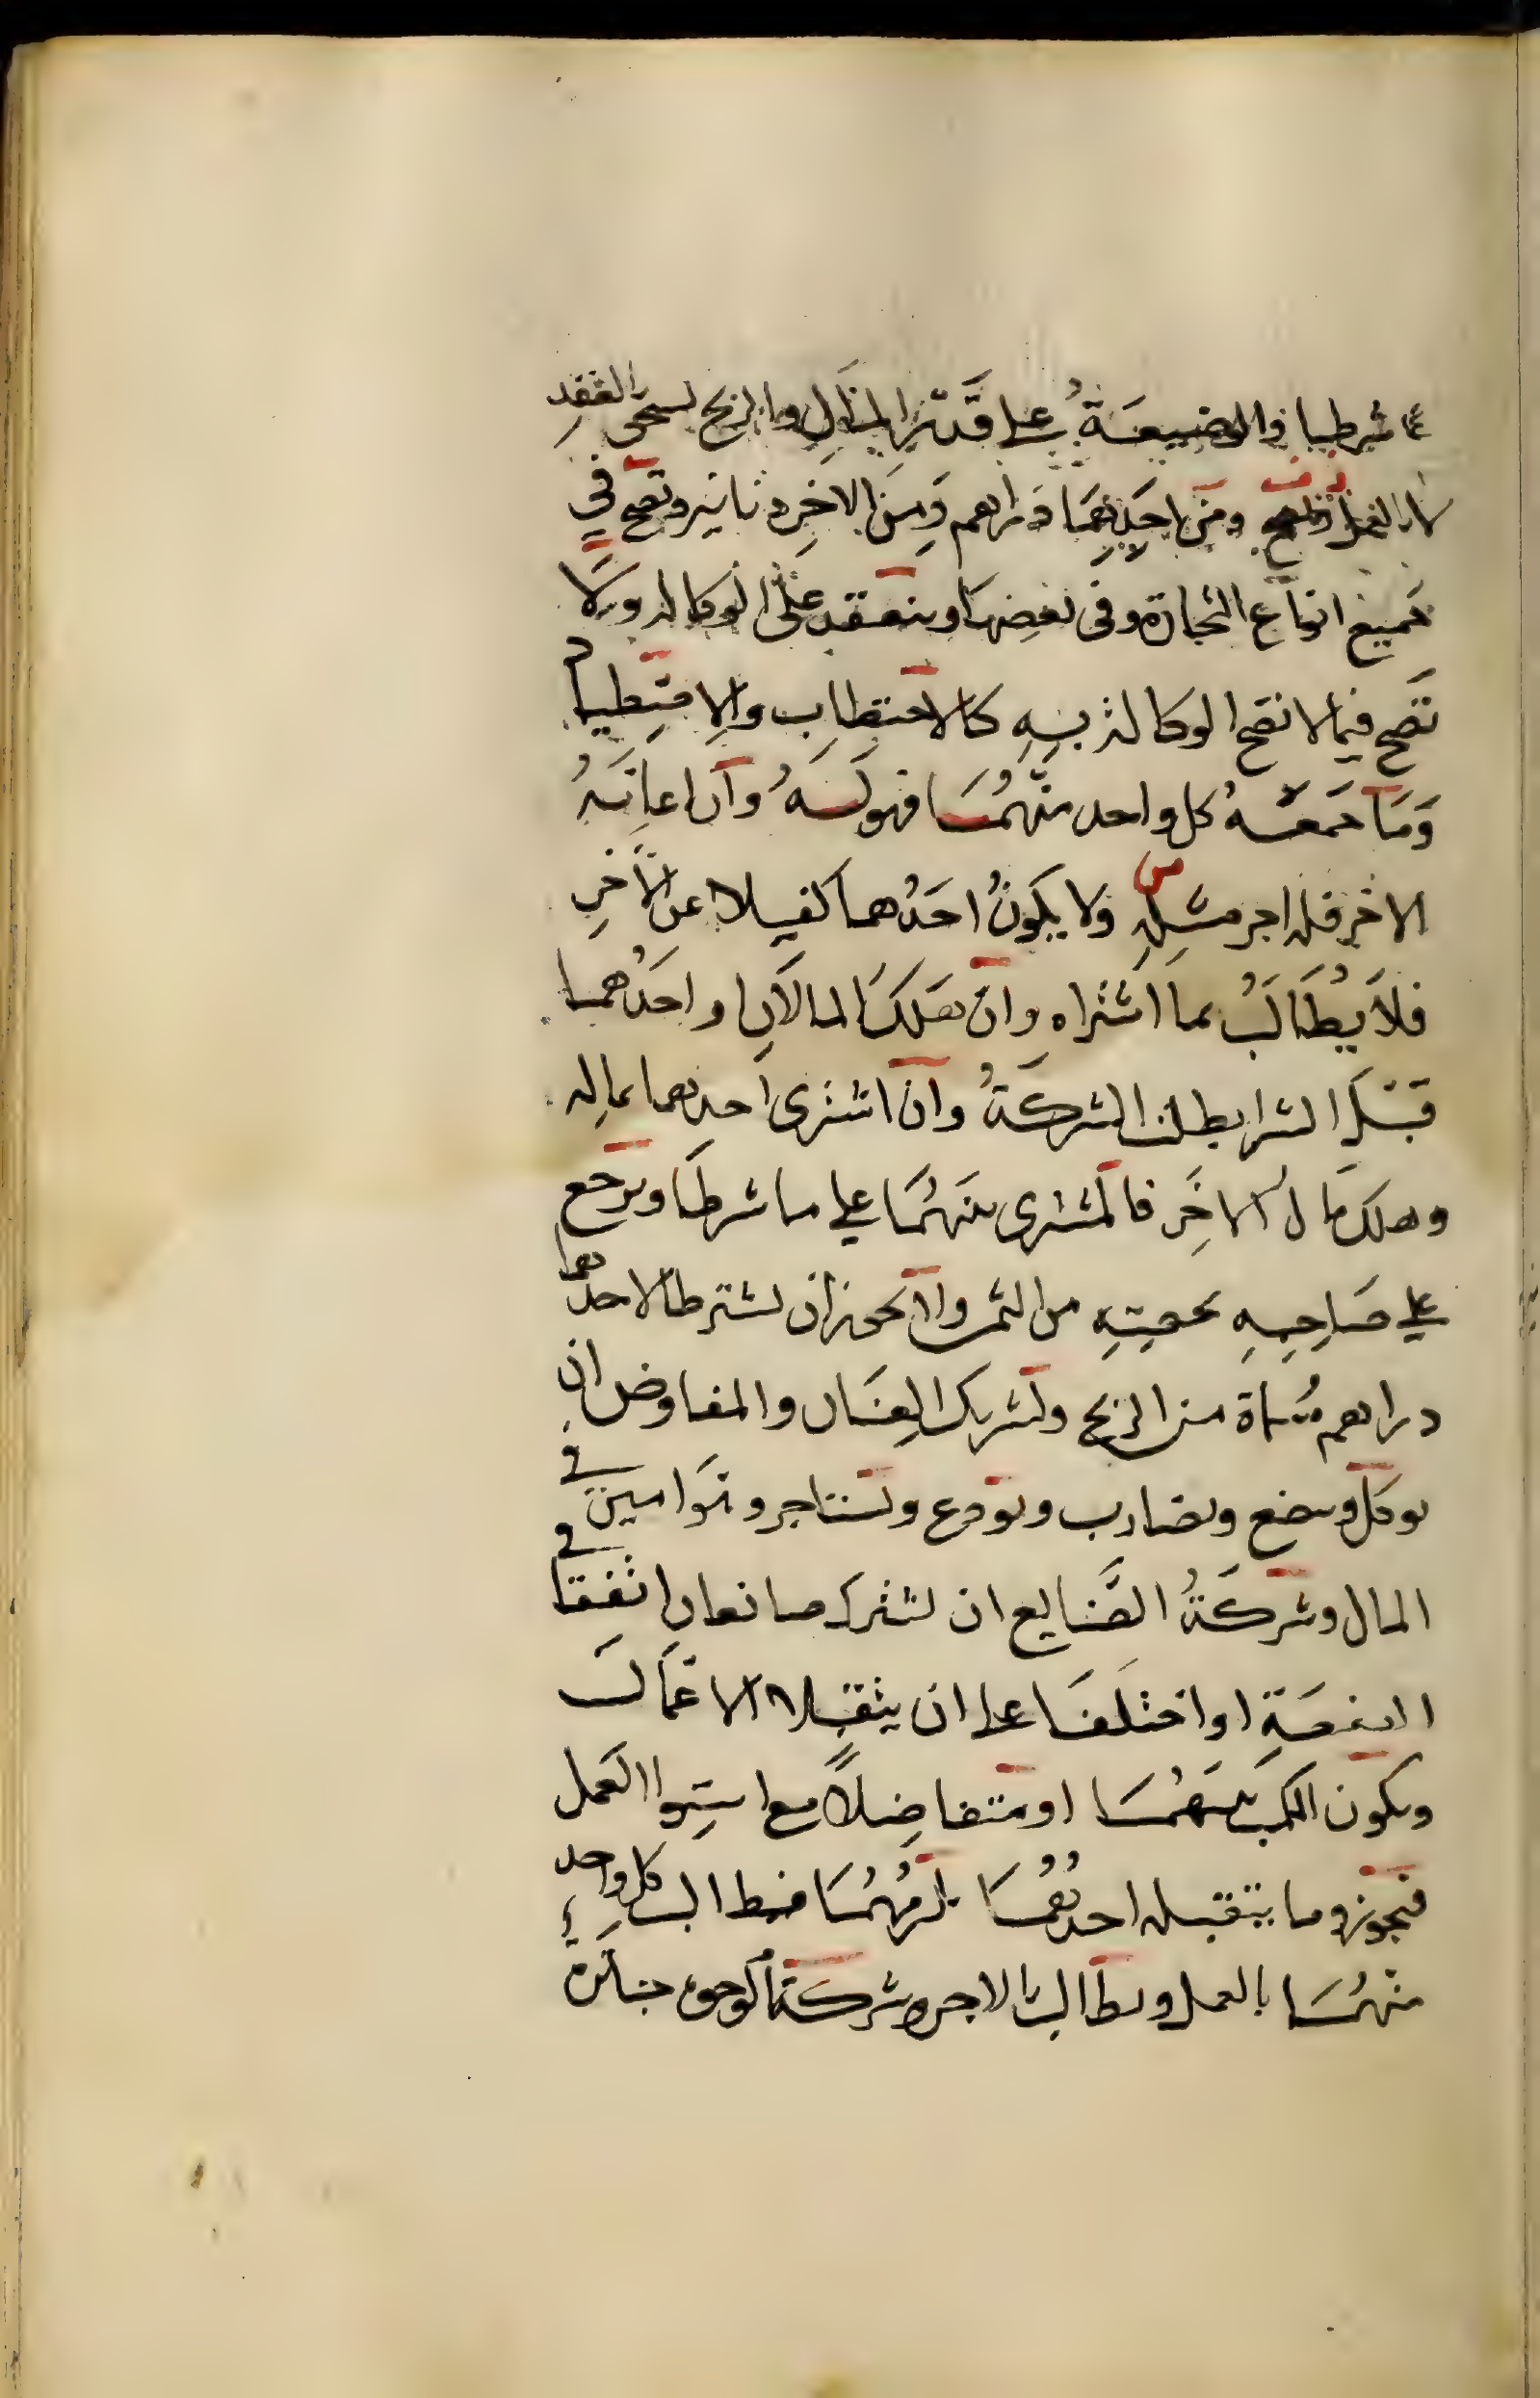 على ما شرطا والوضيعة على قدر المال والربح يستحق بالعقد
ومن احدهما دراهم ومن الاخر دنانير وتصح في
جميع انواع التجارة وفي بعضها وينعقد على الوكالة ولا
تصح فيما لا تصح الوكالة به كالاحتطاب والاصطياد
وما جمعه كل واحد منهما فهو له وان اعانه
الاخر فله اجر مثله ولا يكون احدهما كفيلا عن الآخر
فلا يطالب بما اشتراه وان هلك المالان او احدهما
قبل الشرا بطلت الشركة وان اشترى احدهما بماله
وهلك مال الاخر فالمشترى بينهما على ما شرطا ويرجع
على صاحبه بحصته من الثمن ولا يجوز ان يشترطا لاحدهما
دراهم مسماة من الربح ولشريك العنان والمفاوض ان
يوكل ويبضع ويضارب ويودع ويستاجر وهو امين في
المال وشركة الصنايع ان يشترك صانعان اتفقا في
الصنعة او اختلفا على ان يتقبلا الاعمال
ويكون الكسب بينهما او متفاضلا مع استوا العمل
فيجوز وما يتقبله احدهما يلزمهما فيطالب كل واحد
منهما بالعمل ويطالب بالاجرة وشركة الوجوه جائزة